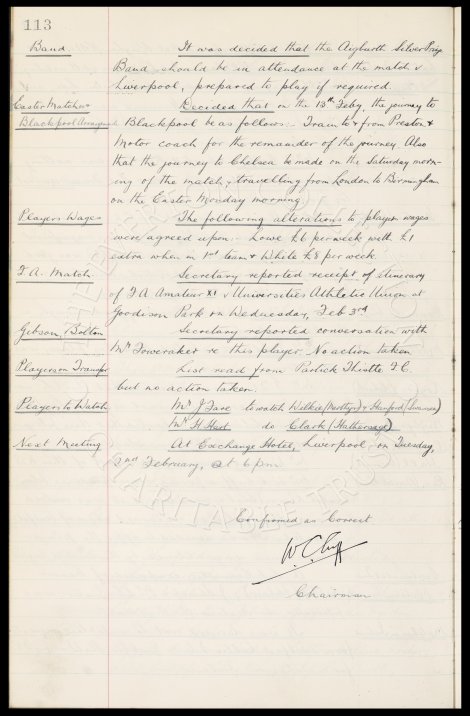 113
Band It was decided that the Aigburth Silver Prize
Band should be in attendance at the match v
Liverpool, prepared to play if required.
Easter Matches Decided that on the 13th Feby, the journey to
Blackpool Blackpool be as follows:- Train to & from Preston &
Motor coach for the remainder of the journey. Also
that the journey to Chelsea be made on the Saturday morn-
ing of the match, travelling from London to Birmingham
on the Easter Monday morning
Players Wages The following alterations to players wages
were agreed upon:- Lowe £6 per week with £1
extra when in 1st team & While £8 per week.
F.A. Match Secretary reported receipt of itinerary
of F.A Amateur XI v Universities Athletic Union at
Goodison Park on Wednesday, Feb 3rd
Gibson Bolton Secretary reported conversation with
Mr Foweraker re this player. No action taken
Players on Transfer List read from Partick Thistle F.C.
but no action taken.
Players to Watch Mr J Fare to watch Wilkie (Merthyr) & Hanford (Swansea)
Mr H Hart do Clark (Hathersage)
Next Meeting At Exchange Hotel, Liverpool on Tuesday,
2nd February, at 6 pm
Confirmed as Correct
W.C. Cuff
Chairman
CHARITABLE TRUST